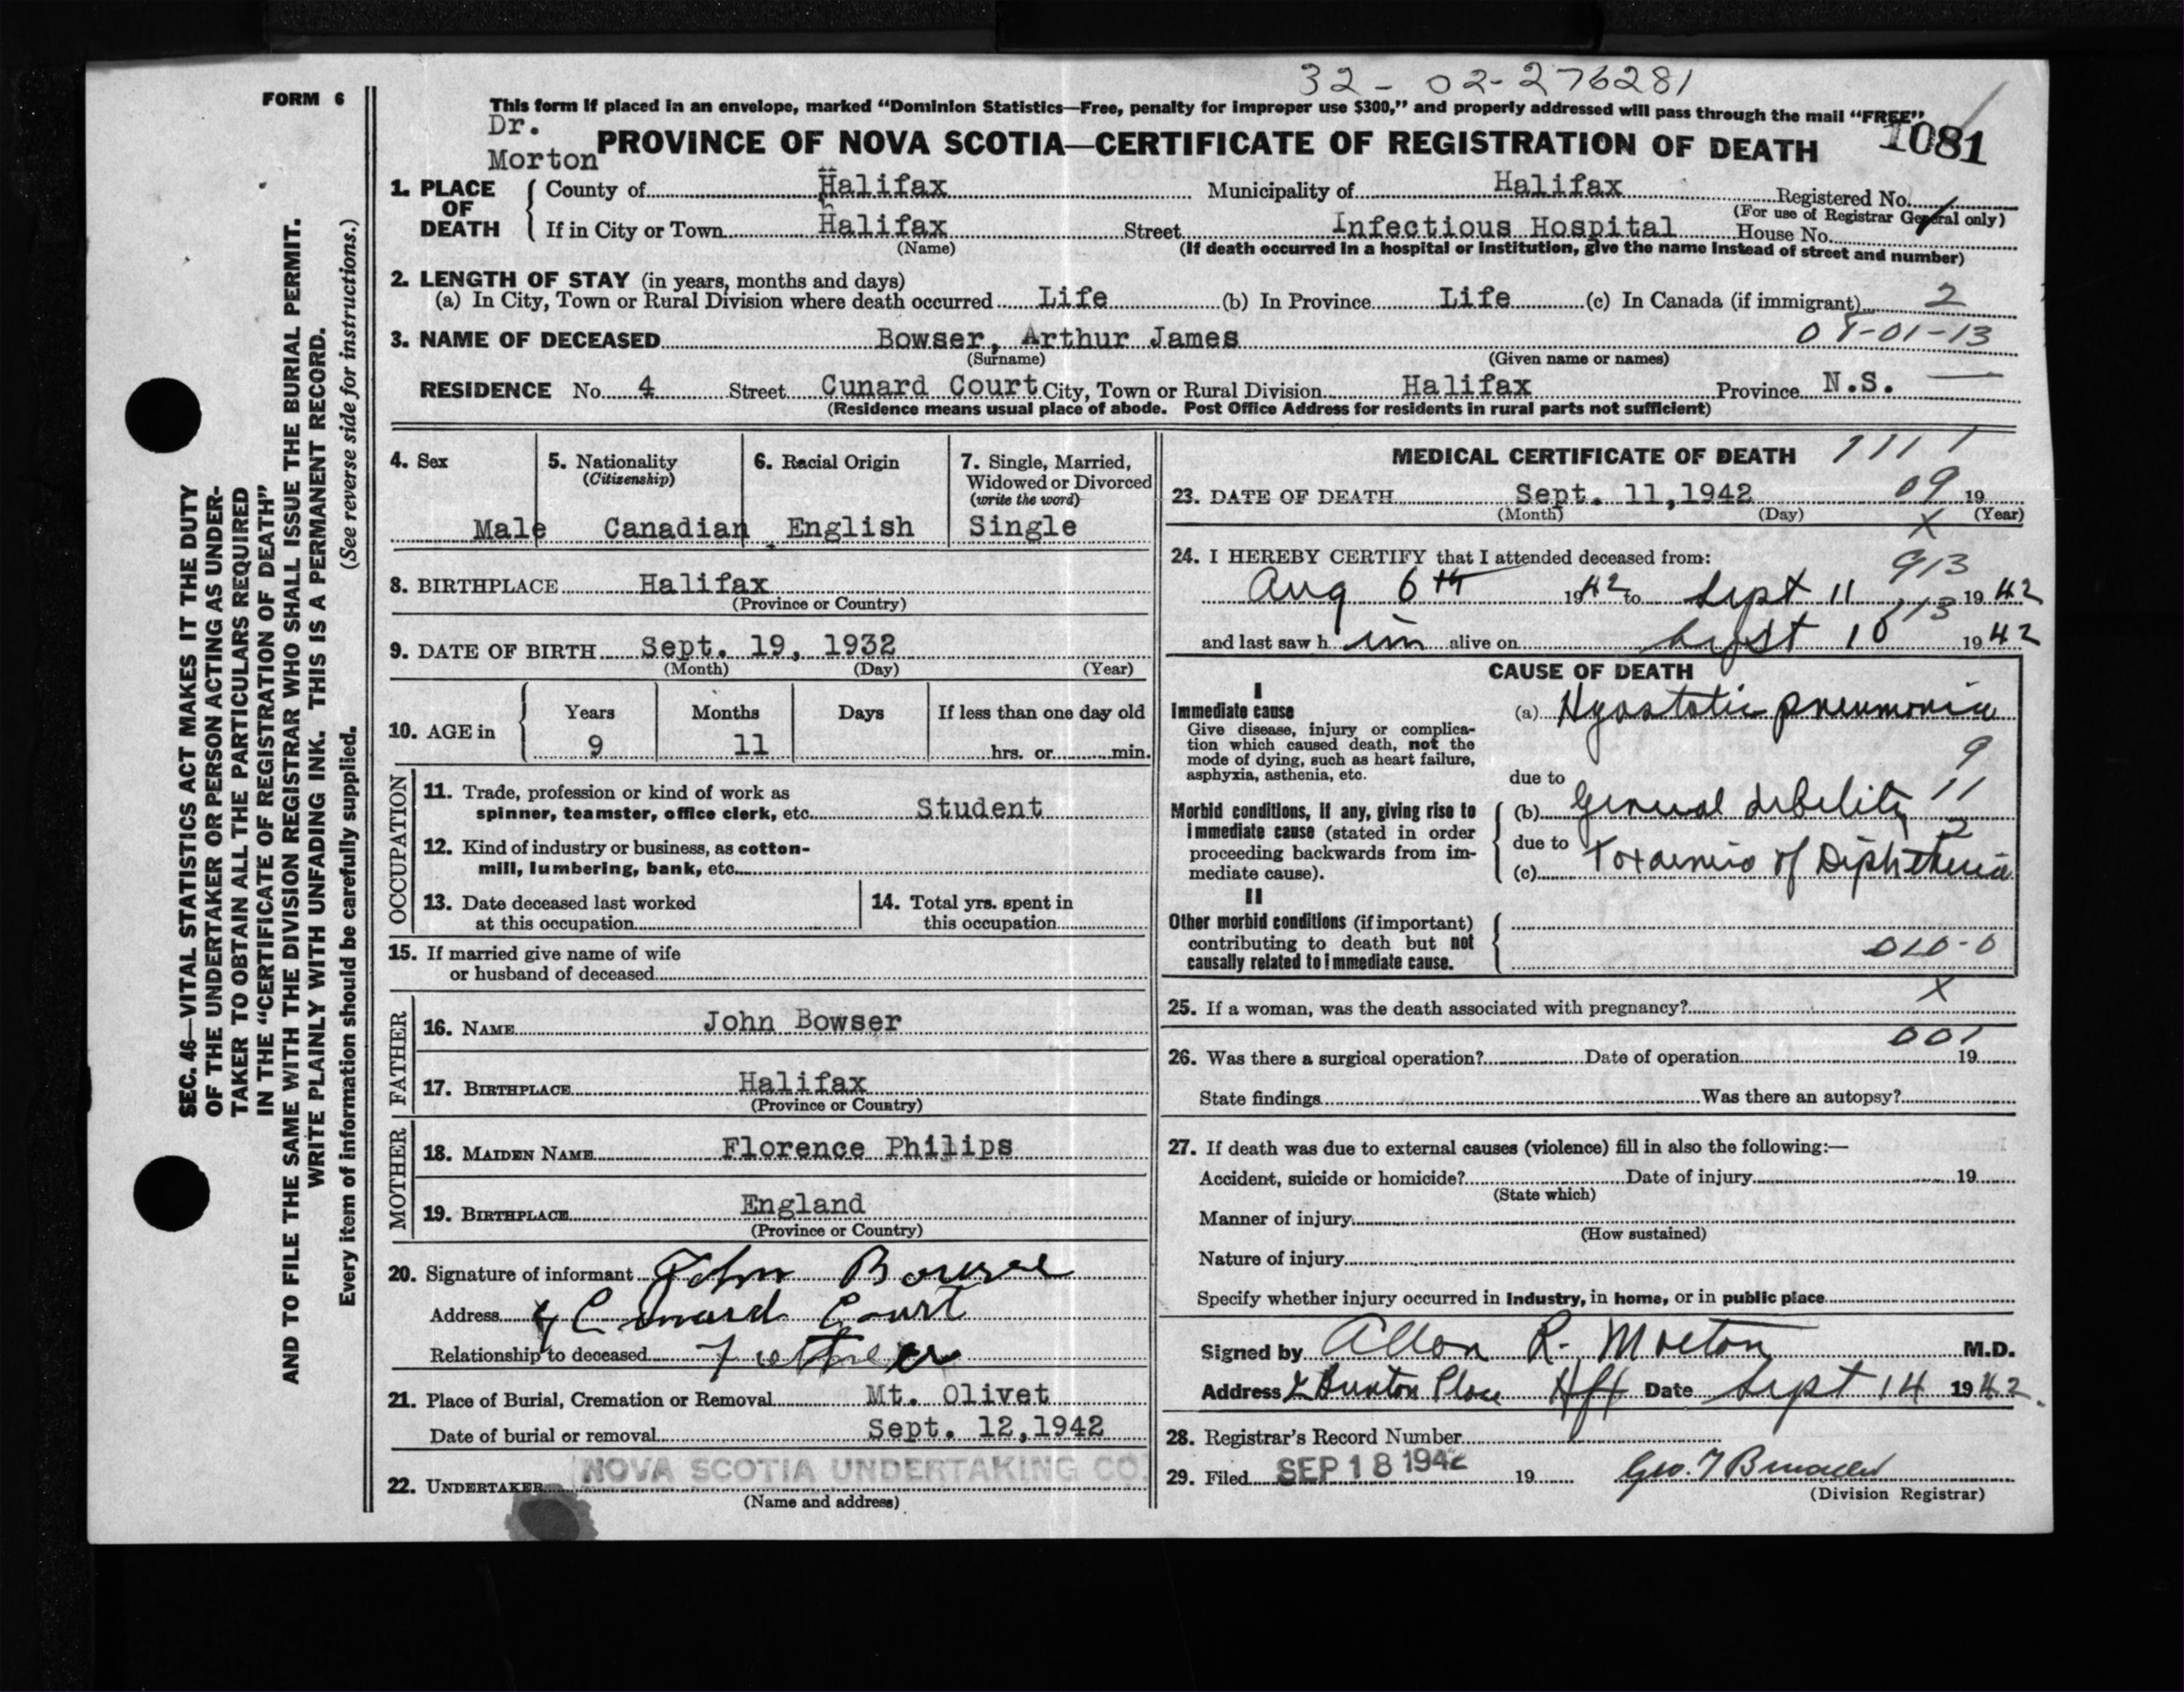 32-02-276281
FORM 6
This form if placed in an envelope, marked “Dominion Statistics—Free, penalty for improper use $300,” and properly addressed will pass through the mail “FREE”
Dr.
Morton
PROVINCE OF NOVA SCOTIA—CERTIFICATE OF REGISTRATION OF DEATH
1081
1. PLACE OF DEATH
County of Halifax Municipality of Halifax Registered No.
(For use of Registrar General only)
If in City or Town Halifax Street Infectious Hospital House No.
(Name) (If death occurred in a hospital or institution, give the name instead of street and number)
2. LENGTH OF STAY (in years, months and days)
(a) In City, Town or Rural Division where death occurred Life (b) In Province Life (c) In Canada (if immigrant) 2
3. NAME OF DECEASED Bowser, Arthur James
(Surname) (Given name or names)
RESIDENCE No. 4 Street Cunard Court City, Town or Rural Division Halifax Province N.S. —
(Residence means usual place of abode. Post Office Address for residents in rural parts not sufficient)
4. Sex
Male
5. Nationality
(Citizenship)
Canadian
6. Racial Origin
English
7. Single, Married,
Widowed or Divorced
(write the word)
Single
8. BIRTHPLACE Halifax
(Province or Country)
9. DATE OF BIRTH Sept. 19, 1932
(Month) (Day) (Year)
10. AGE in
Years Months Days If less than one day old
9 11 hrs. or min.
OCCUPATION
11. Trade, profession or kind of work as
spinner, teamster, office clerk, etc. Student
12. Kind of industry or business, as cotton-
mill, lumbering, bank, etc.
13. Date deceased last worked
at this occupation
14. Total yrs. spent in
this occupation
15. If married give name of wife
or husband of deceased
FATHER
16. NAME John Bowser
17. BIRTHPLACE Halifax
(Province or Country)
MOTHER
18. MAIDEN NAME Florence Philips
19. BIRTHPLACE England
(Province or Country)
20. Signature of informant John Bowser
Address 4 Cunard Court
Relationship to deceased Father
21. Place of Burial, Cremation or Removal Mt. Olivet
Date of burial or removal Sept. 12,1942
22. UNDERTAKER NOVA SCOTIA UNDERTAKING CO.
(Name and address)
MEDICAL CERTIFICATE OF DEATH
23. DATE OF DEATH Sept. 11,1942 09 19
(Month) (Day) (Year)
X
24. I HEREBY CERTIFY that I attended deceased from:
913
Aug 6th 1942 to Sept 11 1942
113
and last saw him alive on Sept 10 1942
CAUSE OF DEATH
I
Immediate cause
Give disease, injury or complica-
tion which caused death, not the
mode of dying, such as heart failure,
asphyxia, asthenia, etc.
(a) Hypostatic pneumonia
9
due to
11
Morbid conditions, if any, giving rise to
immediate cause (stated in order
proceeding backwards from im-
mediate cause).
(b) General debility
2
due to
(c) Toxaemia of Diphtheria
II
Other morbid conditions (if important)
contributing to death but not
causally related to immediate cause.
010-0
X
25. If a woman, was the death associated with pregnancy?
001
26. Was there a surgical operation? Date of operation 19
State findings Was there an autopsy?
27. If death was due to external causes (violence) fill in also the following:—
Accident, suicide or homicide? Date of injury 19
(State which)
Manner of injury
(How sustained)
Nature of injury
Specify whether injury occurred in Industry, in home, or in public place
Signed by Allan R. Morton M.D.
Address Place Hfx Date Sept 14 1942.
28. Registrar's Record Number
29. Filed SEP 18 1942 19
(Division Registrar)
SEC. 46—VITAL STATISTICS ACT MAKES IT THE DUTY
OF THE UNDERTAKER OR PERSON ACTING AS UNDER-
TAKER TO OBTAIN ALL THE PARTICULARS REQUIRED
IN THE “CERTIFICATE OF REGISTRATION OF DEATH”
AND TO FILE THE SAME WITH THE DIVISION REGISTRAR WHO SHALL ISSUE THE BURIAL PERMIT.
WRITE PLAINLY WITH UNFADING INK. THIS IS A PERMANENT RECORD.
Every item of information should be carefully supplied. (See reverse side for instructions.)